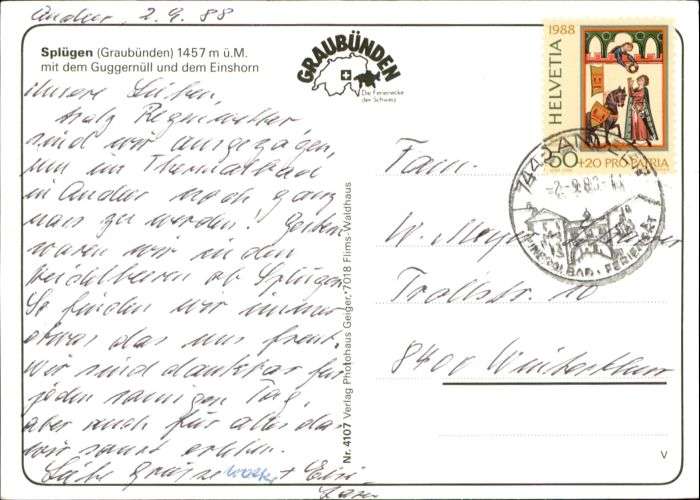 Andeer, 2.9.88
Splügen (Graubünden) 1457 m ü.M.
mit dem Guggernüll und dem Einshorn
GRAUBÜNDEN
Die Ferienecke
der Schweiz
Unsere Lieben,
trotz Regenwetter
sind wir ausgezogen,
um im Thermalbad
in Andeer noch ganz
nass zu werden! Gestern
waren wir in den
Heidelbeeren ob Splügen
So finden wir immer
etwas das uns freut.
Wir sind dankbar für
jeden sonnigen Tag,
aber auch für alles das
wir sonst erleben.
Liebe Grüsse
Nr. 4107 Verlag Photohaus Geiger, 7018 Flims-Waldhaus
1988
HELVETIA
50+20 PRO PATRIA
7440 ANDEER
-2.-9.88-
MINERALBAD + FERIENORT
Fam.
W. Meyer
Trollstr. 10
8400 Winterthur
V